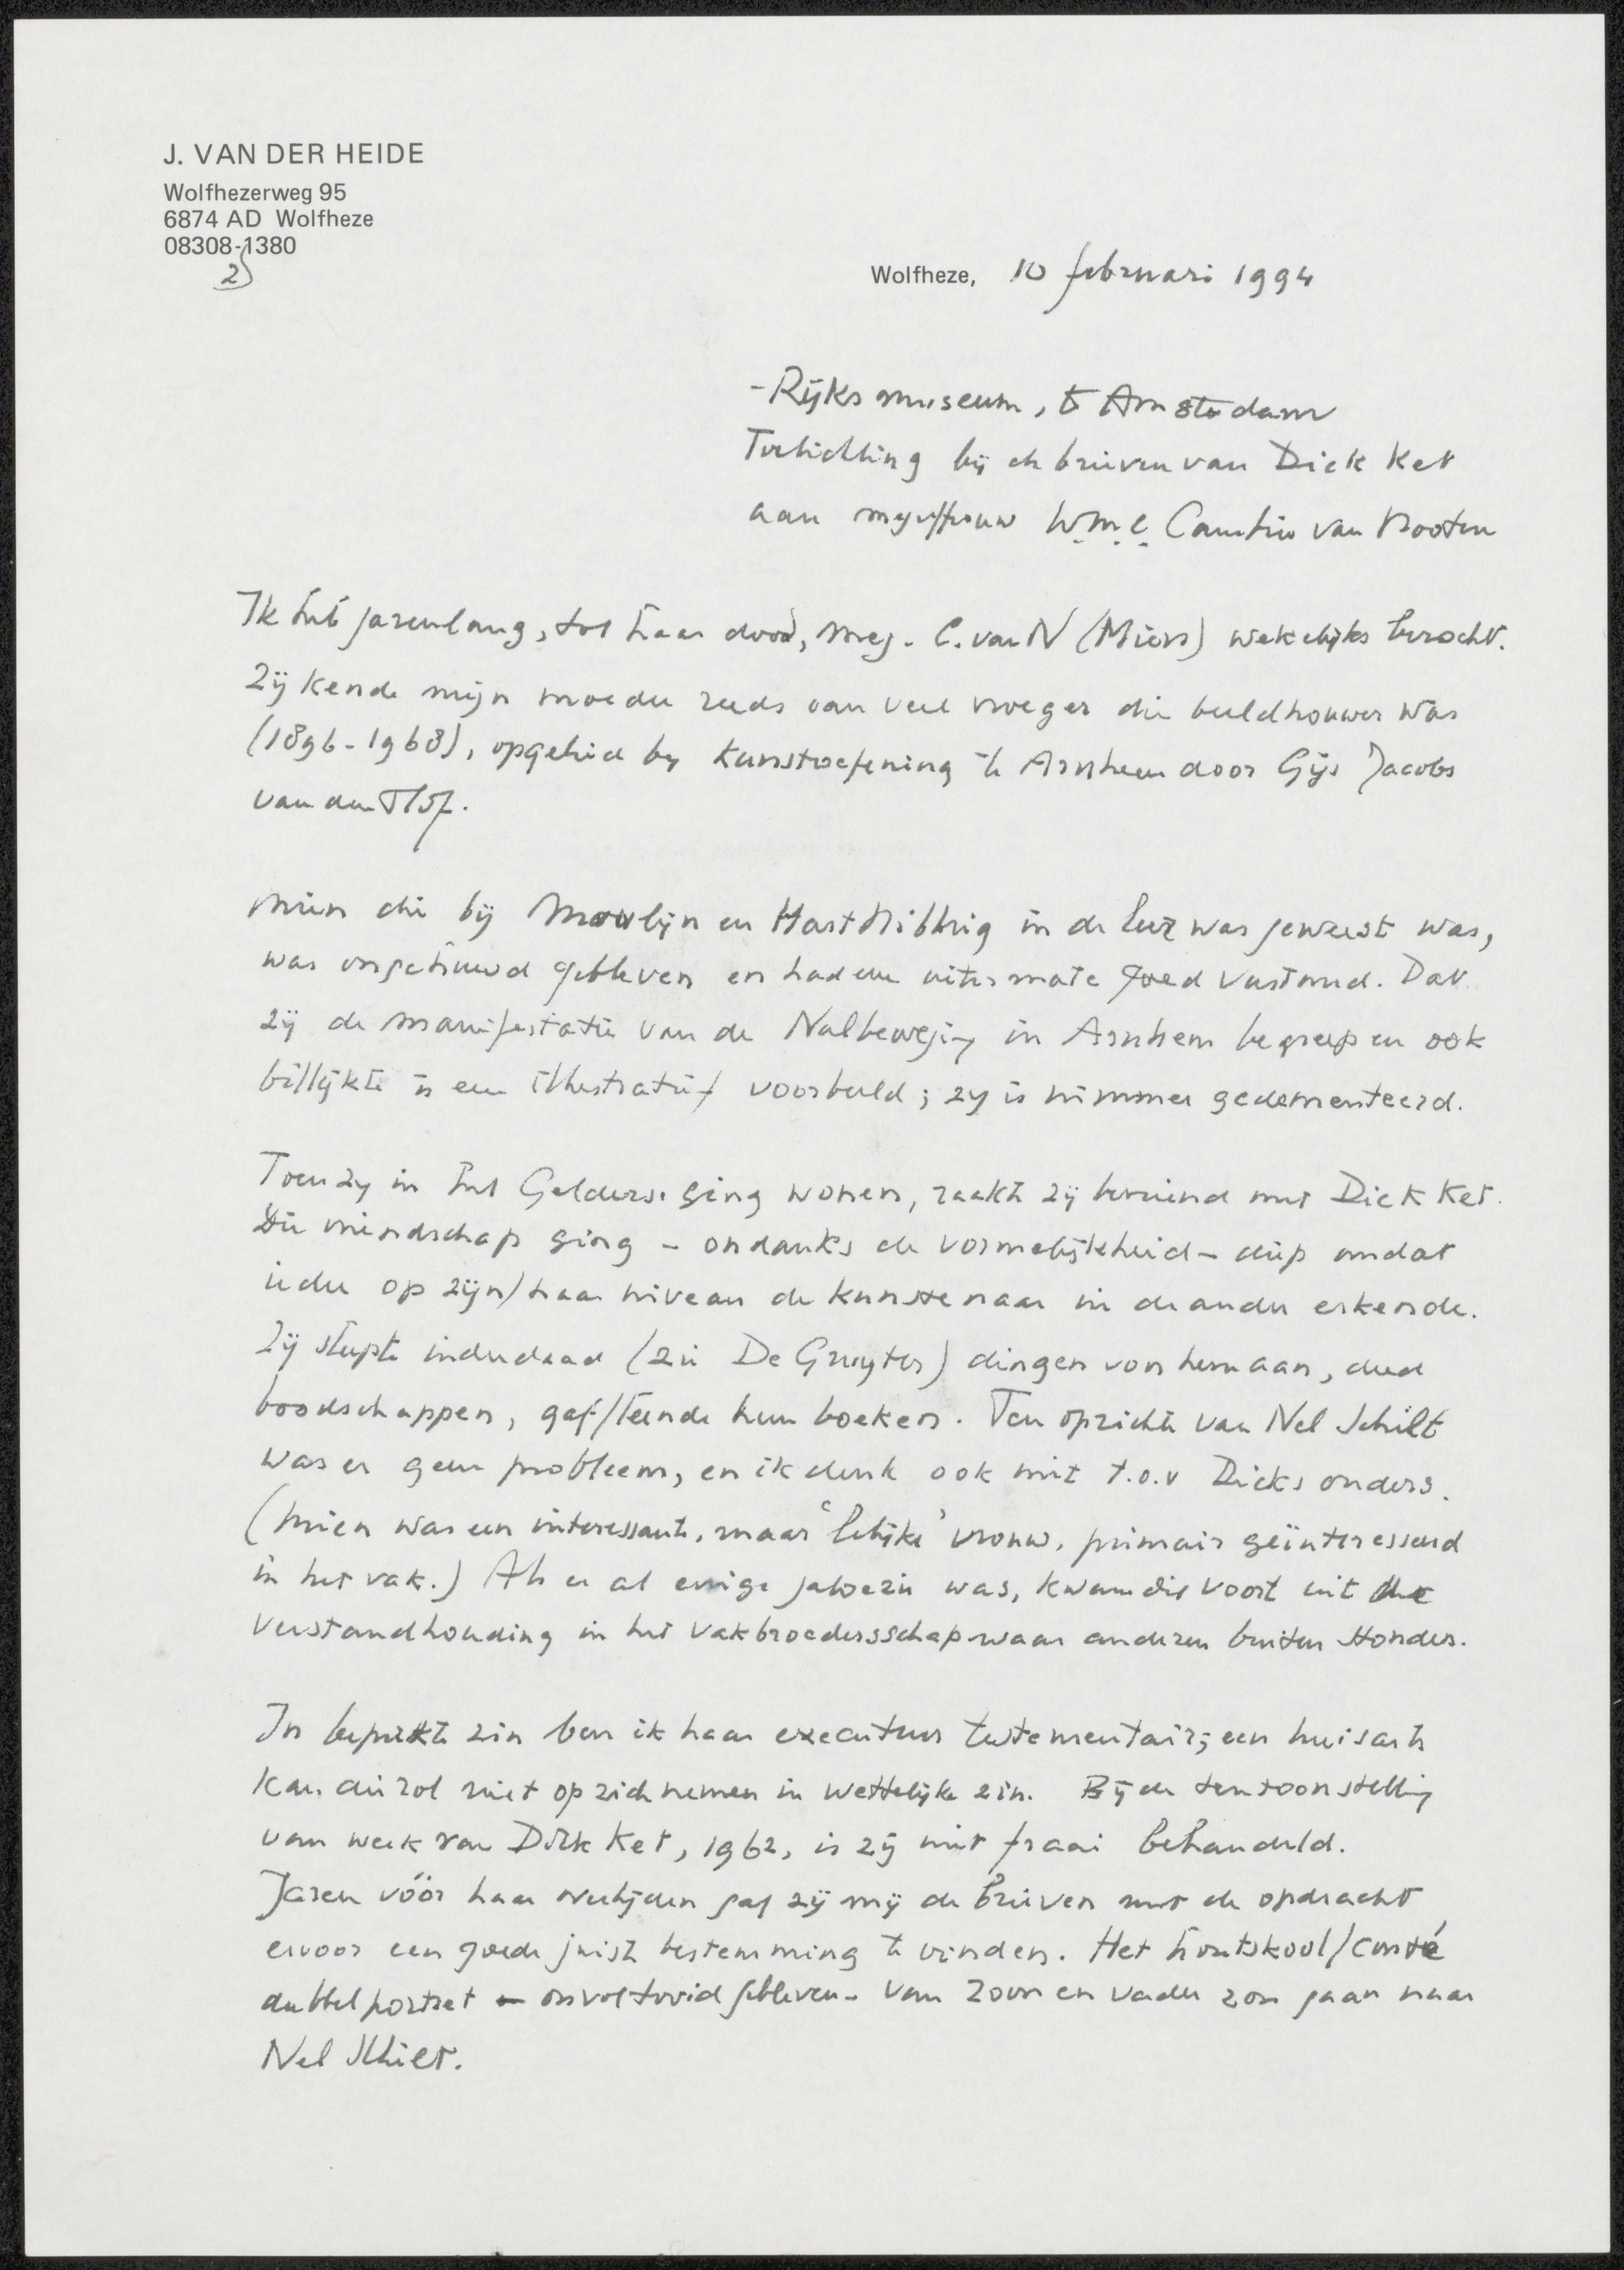 J. VAN DER HEIDE
Wolfhezerweg 95
6874 AD Wolfheze
08308-1380
2)
Wolfheze, 10 februari 1994
- Rijksmuseum, te Amsterdam
Toelichting bij de brieven van Dick Ket
aan mejuffrouw W.M.C. Camtio van Nooten
Ik heb jarenlang, tot haar dood, mej. C. van N (Mien) wekelijks bezocht.
Zij kende mijn moeder reeds van veel vroeger die beeldhouwer was
(1896-1968), opgeleid by Kunstoefening te Arnhem door Gijs Jacobs
van den Hof.
Mien die bij Moulijn en Hart Nibbrig in de leer was geweest was,
was ongehuwd gebleven en had een uitermate goed verstand. Dat
zij de manifestatie van de Nulbeweging in Arnhem begreep en ook
billijkte is een illustratief voorbeeld; zy is nimmer gedementeerd.
Toen zy in het Gelderse ging wonen, raakte zij bevriend met Dick Ket.
Die vriendschap ging - ondanks de vormelijkheid - diep omdat
ieder op zijn/haar niveau de kunstenaar in de ander erkende.
Zij sleepte inderdaad (zie De Gruyter) dingen voor hem aan, deed
boodschappen, gaf/leende hem boeken. Ten opzichte van Nel Schilt
was er geen probleem, en ik denk ook niet t.o.v Dicks ouders.
(Mien was een interessante, maar 'lelijke' vrouw, primair geïnteresseerd
in het vak.) Als er al enige jaloezie was, kwam die voort uit de
verstandhouding in het vakbroedersschap waar anderen buiten stonden.
In beperkte zin ben ik haar executeur testementair; een huisarts
kan die rol niet op zich nemen in wettelijke zin. Bij de tentoonstelling
van werk van Dick Ket, 1962, is zij niet fraai behandeld.
Jaren vóór haar overlijden gaf zij mij de brieven met de opdracht
ervoor een goede juiste bestemming te vinden. Het houtskool/conté
dubbelportret - onvoltooid gebleven - van zoon en vader zou gaan naar
Nel Schilt.